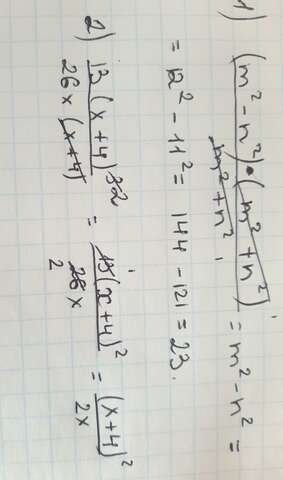 1) (m² - n²) • (m² + n²) / m² + n² = m² - n² =
= 12² - 11² = 144 - 121 = 23.
2) 13 (x+4)³ ² / 26 x (x+4) = 13 (x+4)² / 26 x = (x+4)² / 2x
1
1
2